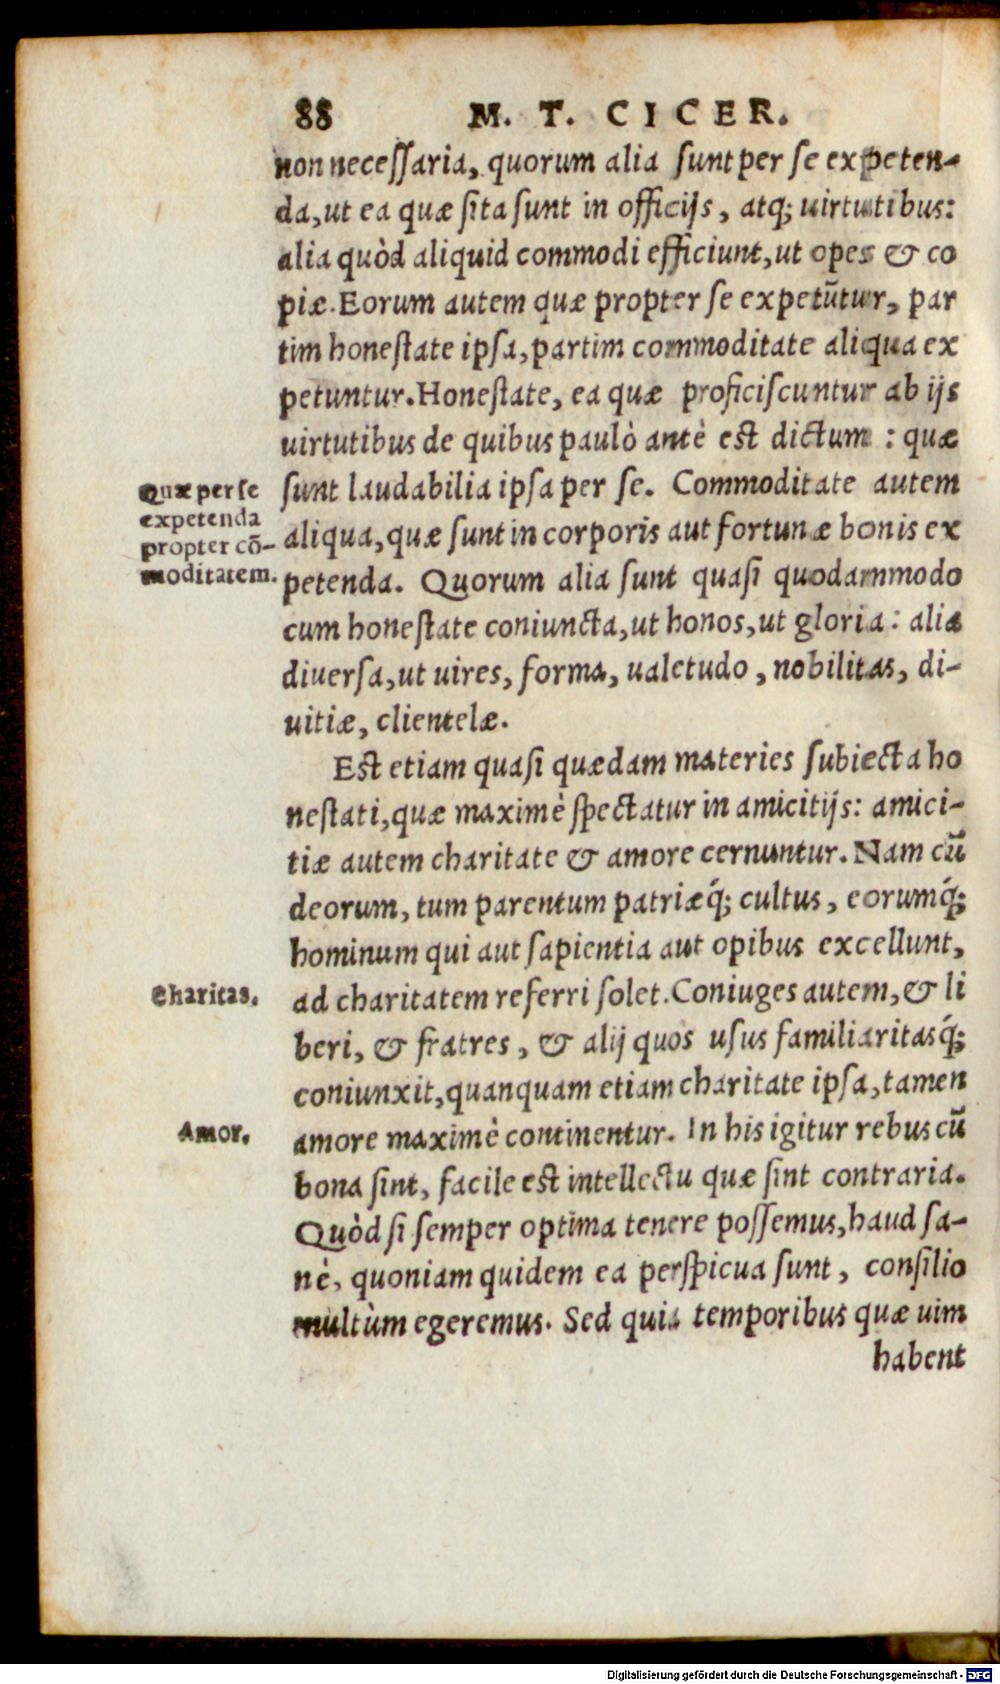 88 M. T. CICER.
non neceſſaria, quorum alia ſunt per ſe expeten-
da, ut ea quæ ſita ſunt in officijs, atq; uirtutibus:
alia quòd aliquid commodi efficiunt, ut opes & co
piæ. Eorum autem quæ propter ſe expetũtur, par
tim honeſtate ipſa, partim commoditate aliqua ex
petuntur. Honeſtate, ea quæ proficiſcuntur ab ijs
uirtutibus de quibus paulò antè est dictum: quæ
ſunt laudabilia ipſa per ſe. Commoditate autem
aliqua, quæ ſunt in corporis aut fortunæ bonis ex
petenda. Quorum alia ſunt quaſi quodammodo
cum honeſtate coniuncta, ut honos, ut gloria: alia
diuerſa, ut uires, forma, ualetudo, nobilitas, di-
uitiæ, clientelæ.
Quæ per ſe
expetenda
propter cõ-
moditatem.
Est etiam quaſi quædam materies ſubiecta ho
neſtati, quæ maximè ſpectatur in amicitijs: amici-
tiæ autem charitate & amore cernuntur. Nam cũ
deorum, tum parentum patriæq́; cultus, eorumq́;
hominum qui aut ſapientia aut opibus excellunt,
ad charitatem referri ſolet. Coniuges autem, & li
beri, & fratres, & alij quos uſus familiaritasq́;
coniunxit, quanquam etiam charitate ipſa, tamen
amore maximè continentur. In his igitur rebus cũ
bona ſint, facile est intellectu quæ ſint contraria.
Quòd ſi ſemper optima tenere poſſemus, haud ſa-
nè, quoniam quidem ea perſpicua ſunt, conſilio
multùm egeremus. Sed quia temporibus quæ uim
habent
Charitas.
Amor.
Digitalisierung gefördert durch die Deutsche Forschungsgemeinschaft - DFG